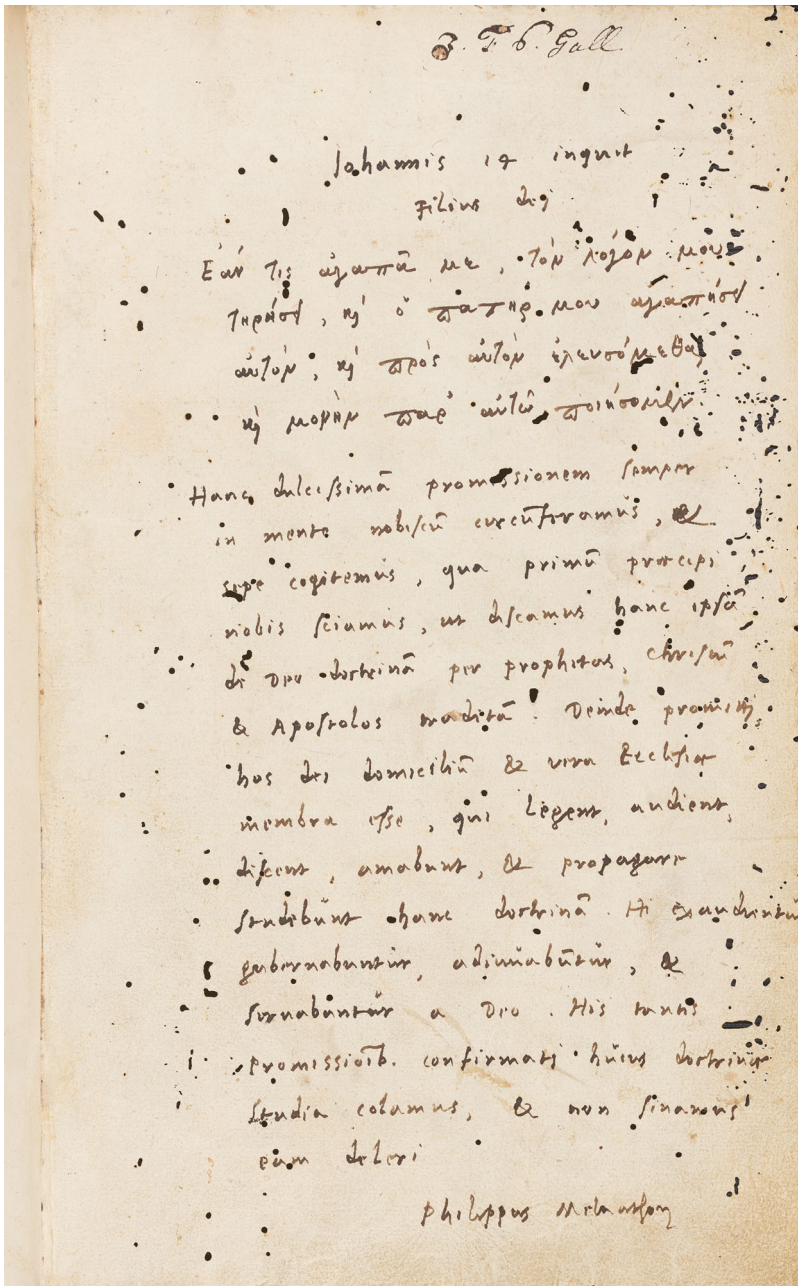 Johannis 14 inquit
Filius dej
Ἐάν τις ἀγαπᾶ με, τὸν λόγόν μου
τηρήσει, καὶ ὁ πατήρ μου ἀγαπήσει
αὐτὸν, καὶ πρὸς αὐτὸν ἐλευσόμεθα,
καὶ μονὴν παρ' αὐτῶ ποιήσομεν
Hanc dulcissimā promissionem semper
in mente nobiscū circūferamus, &
sepe cogitemus, qua primū præcipi
nobis sciamus, ut discamus hanc ipsā
de Deo doctrinā per prophetas, Christū
& Apostolos traditā. Deinde promitti
hos dei domiciliū & vera Ecclesiæ
membra esse, qui legent, audient,
discent, amabunt, & propagare
studebunt hanc doctrinā. Hi exaudientur
gubernabuntur, adiuuabuntur, &
seruabuntur a Deo. His tantis
promissioīb. confirmatj huius doctrinæ
studia colamus, & non sinamus
eam deleri
Philippus Melanthon